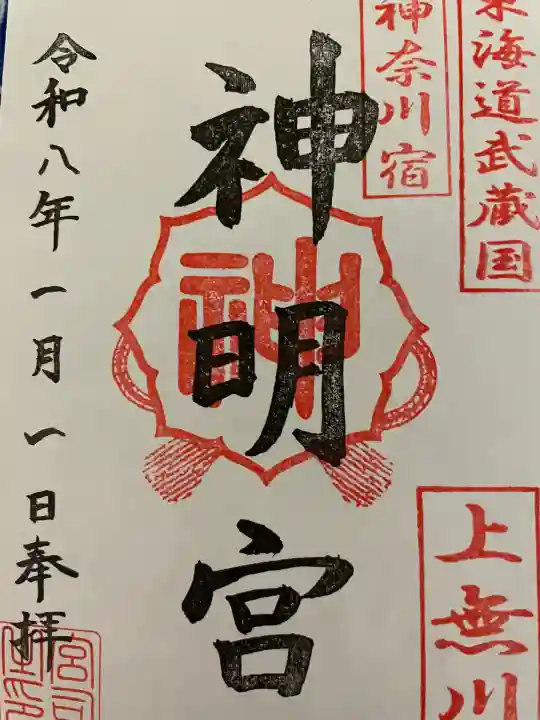 東海道武蔵国
神奈川宿
上無川
神明宮
神
令和八年一月一日奉拝
宮司之印